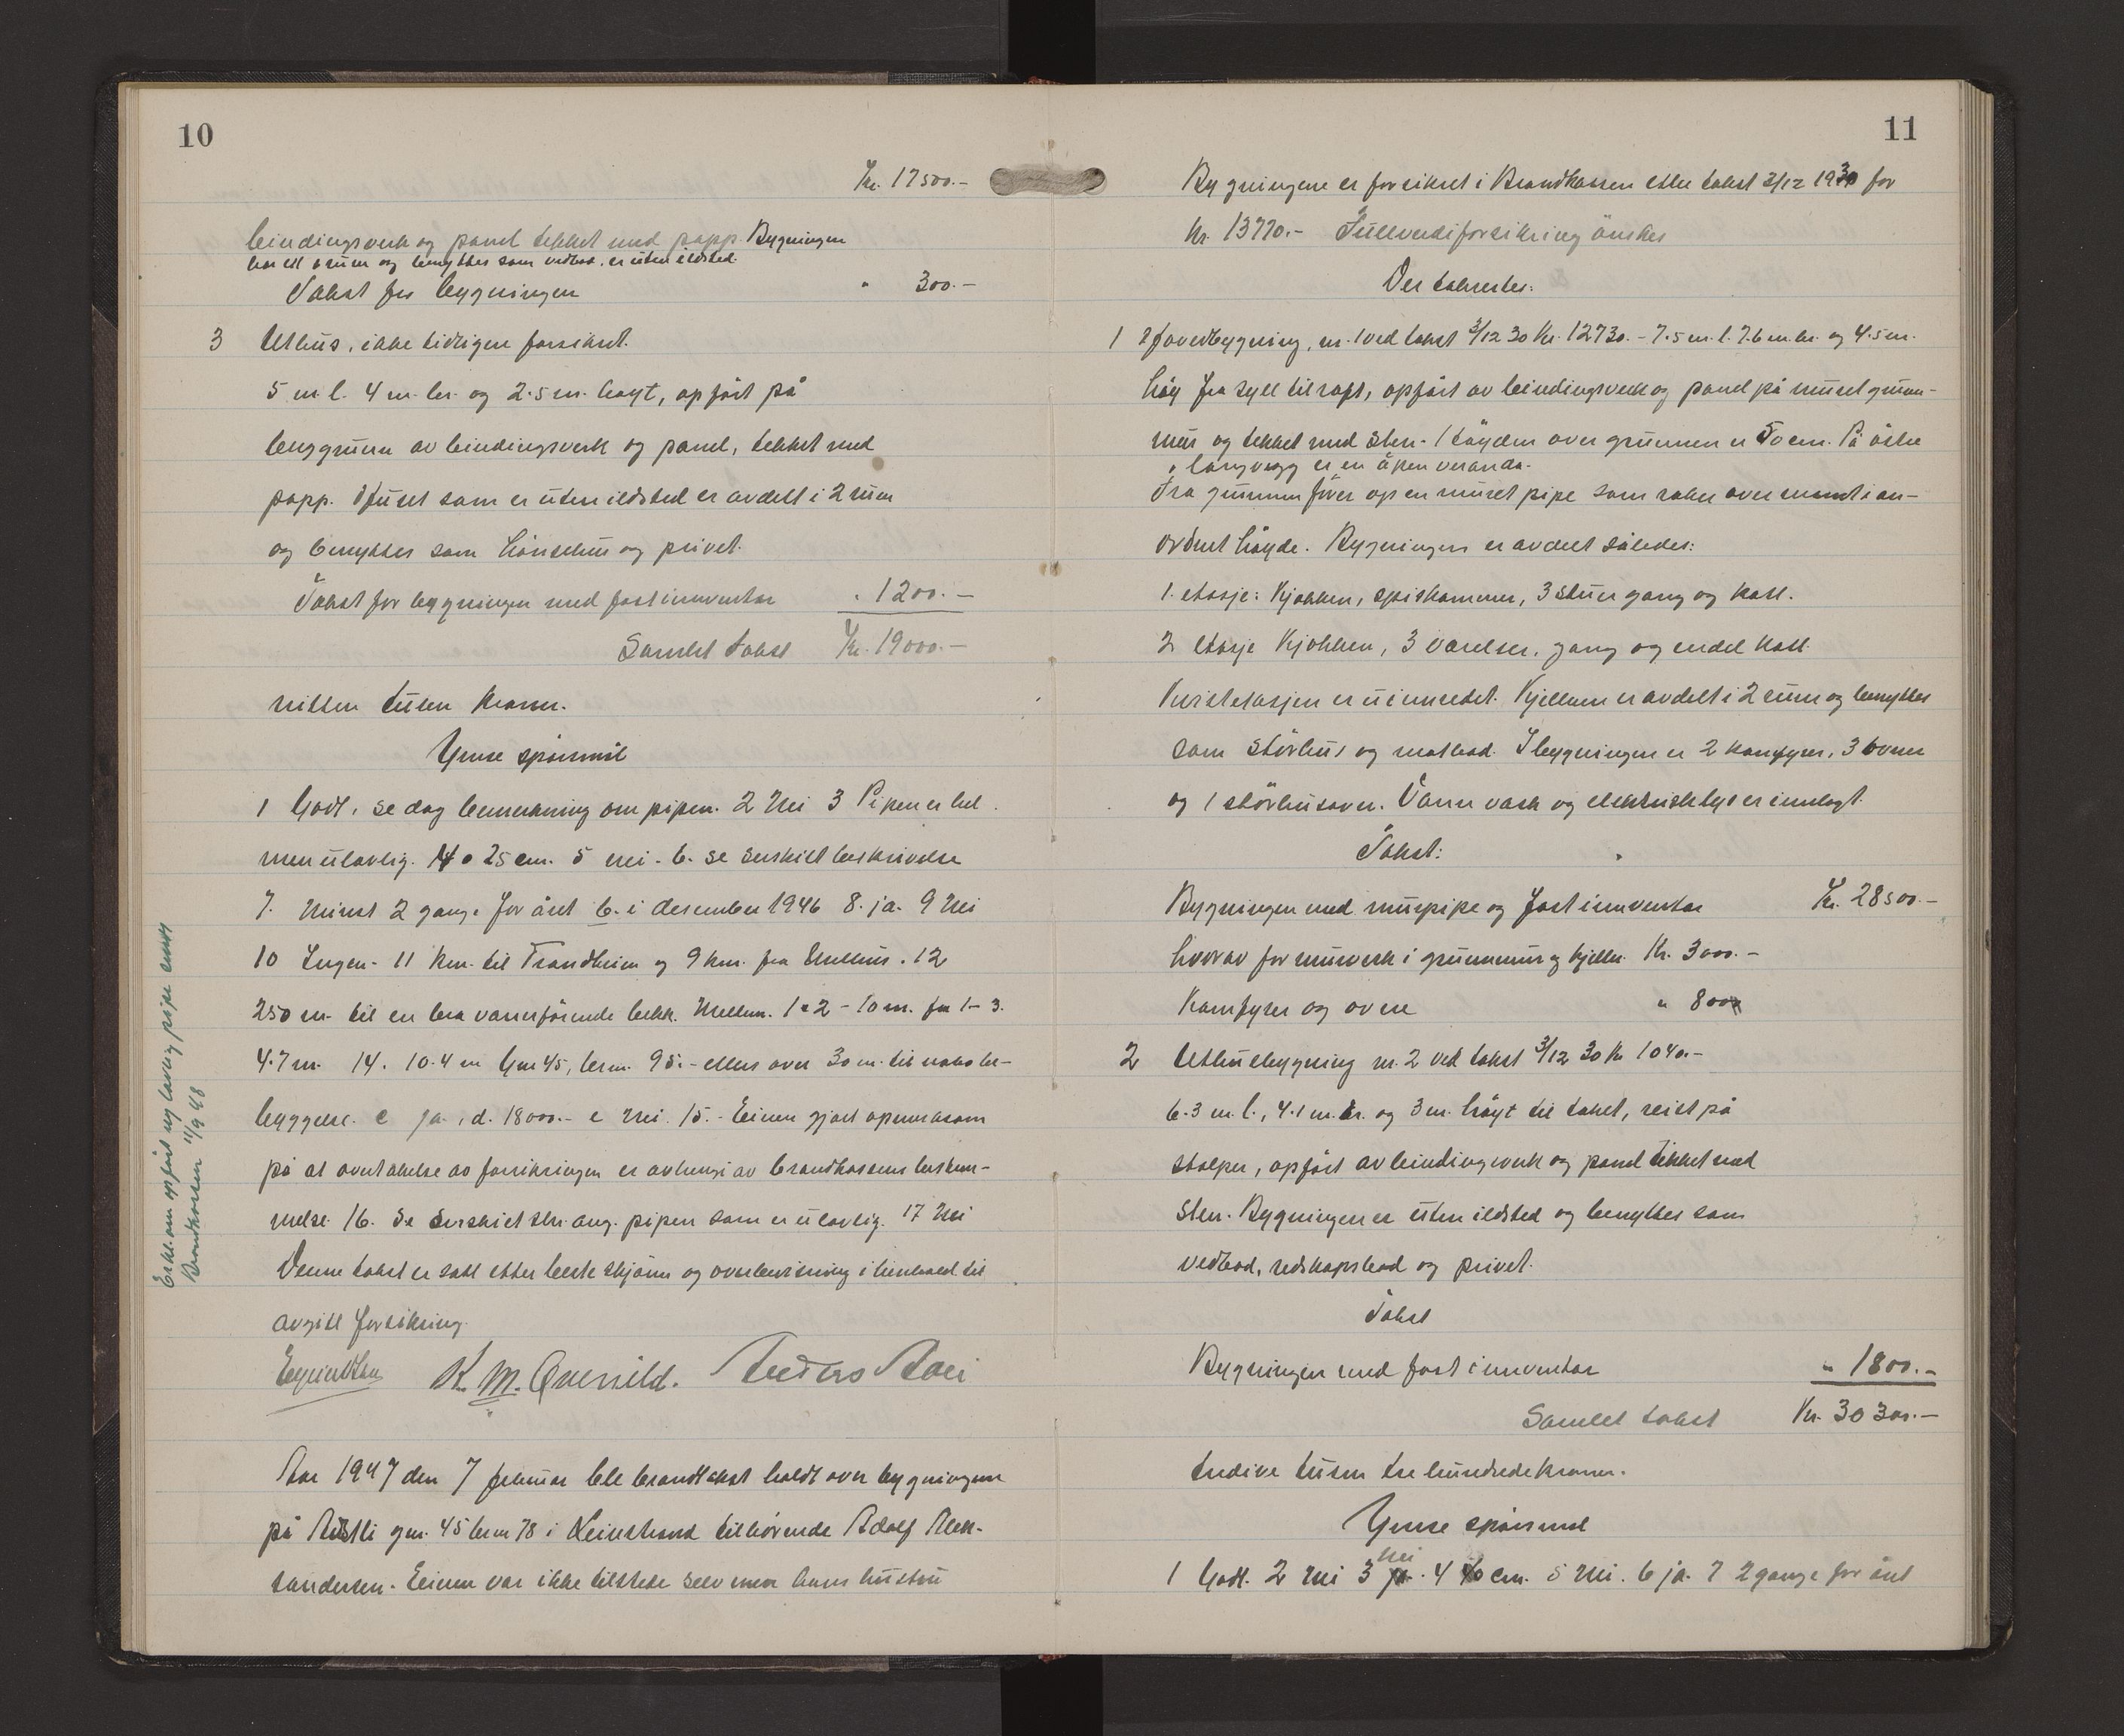 10
Kr. 17500.-
bindingsverk og panel tekket med papp. Bygningen
har ett rum og benyttes som vedbod, er uten ildsted.
Takst for bygningen " 300.-
3 Uthus, ikke tidligere forsikret.
5 m. l. 4 m. br. og 2.5 m. høyt, opført på
lenggrunn av bindingsverk og panel, tekket med
papp. Huset som er uten ildsted er avdelt i 2 rum
og benyttes som hönsehus og privet.
Takst for bygningen med fast innventar " 1200.-
Samlet takst Kr. 19000.-
nitten tusen kroner.
Ymse spörsmål
1 Godt, se dog bemerkning om pipen. 2 Nei 3 Pipen er hel
men ulovlig. 4 25 cm. 5 nei. 6. se serskilt beskrivelse
7. Minst 2 gange for året 6. i desember 1946 8. ja. 9 Nei
10 Ingen. 11 km. til Trondheim og 9 km. fra Melhus. 12
250 m. til en bra vannförende bekk. Mellem. 1 2 - 10 m. fra 1-3.
4.7 m. 14. 10.4 m Gm 45, brm. 95.- ellers over 30 m. til nabobe-
byggelse. c ja., d. 18000.- e Nei. 15. - Eieren gjort opmerksom
på at overtakelse av forsikringen er avhengi av brandkassens bestem-
melse. 16. Se serskiet skr. ang. pipen som er ulovlig. 17 Nei
Denne takst er satt etter beste skjönn og overbevisning i henhold til
avgitt forsikring.
K. M. Qvenild.
Aar 1947 den 7 februar ble brandtakst holdt over bygningene
på gm. 45 brm 78 i Leinstrand tilhørende Adolf Alek-
sandersen. Eieren var ikke tilstede selv men hans hustru
Erkl. om opført ny lovlig pipe
Brandkassen 11/9 48
11
Bygningene er forsikret i Brandkassen etter takst 3/12 1930 for
Kr. 13770.- Fullverdiforsikring önskes
Der takseres:
1 Hovedbygning, nr. 1 ved takst 3/12 30 Kr. 12730.- 7.5 m. l. 7.6 m. br. og 4.5 m.
höy fra syll til raft, opført av bindingsverk og panel på muret grunn-
mur og tekket med sten. Höyden over grunnen er 50 cm. På östre
langvegg er en åpen veranda.
Fra grunnen förer op en muret pipe som raker over mönet i an-
ordnet höyde. Bygningen er avdelt således:
1. etasje: Kjøkken, spiskammer, 3 stuer gang og kott.
2 etasje Kjøkken, 3 værelser, gang og endel kott.
Kvistetasjen er uinnredet. Kjelleren er avdelt i 2 rum og benyttes
som störhus og matbod. I bygningen er 2 komfyrer, 3 ovner
og 1 störhusovn. Vann vask og elektrisk lys er innlagt.
Takst:
Bygningen med murpipe og fast innventar Kr. 28500.-
hvorav for murverk i grunnmur og kjeller Kr. 3000.-
Komfyrer og ovne " 800
2 Uthusbygning nr. 2 ved takst 3/12 30 Kr 1040.-
6.3 m. l., 4.1 m. br. og 3 m. höyt til taket, reist på
stolper, opfört av bindingsverk og panel tekket med
sten. Bygningen er uten ildsted og benyttes som
vedbod, redskapsbod og privet.
Takst
Bygningen med fast innventar " 1800.-
Samlet takst Kr. 30300.-
tredive tusen tre hundrede kroner.
Ymse spörsmål
nei
1 Godt. 2 Nei 3 ja. 4 cm. 5 Nei. 6 ja. 7 2 gange for året